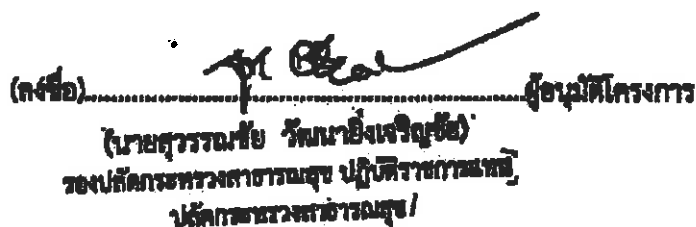 (ลงชื่อ)........................................ผู้อนุมัติโครงการ
(นายสุวรรณชัย วัฒนายิ่งเจริญชัย)
รองปลัดกระทรวงสาธารณสุข ปฏิบัติราชการแทน
ปลัดกระทรวงสาธารณสุข